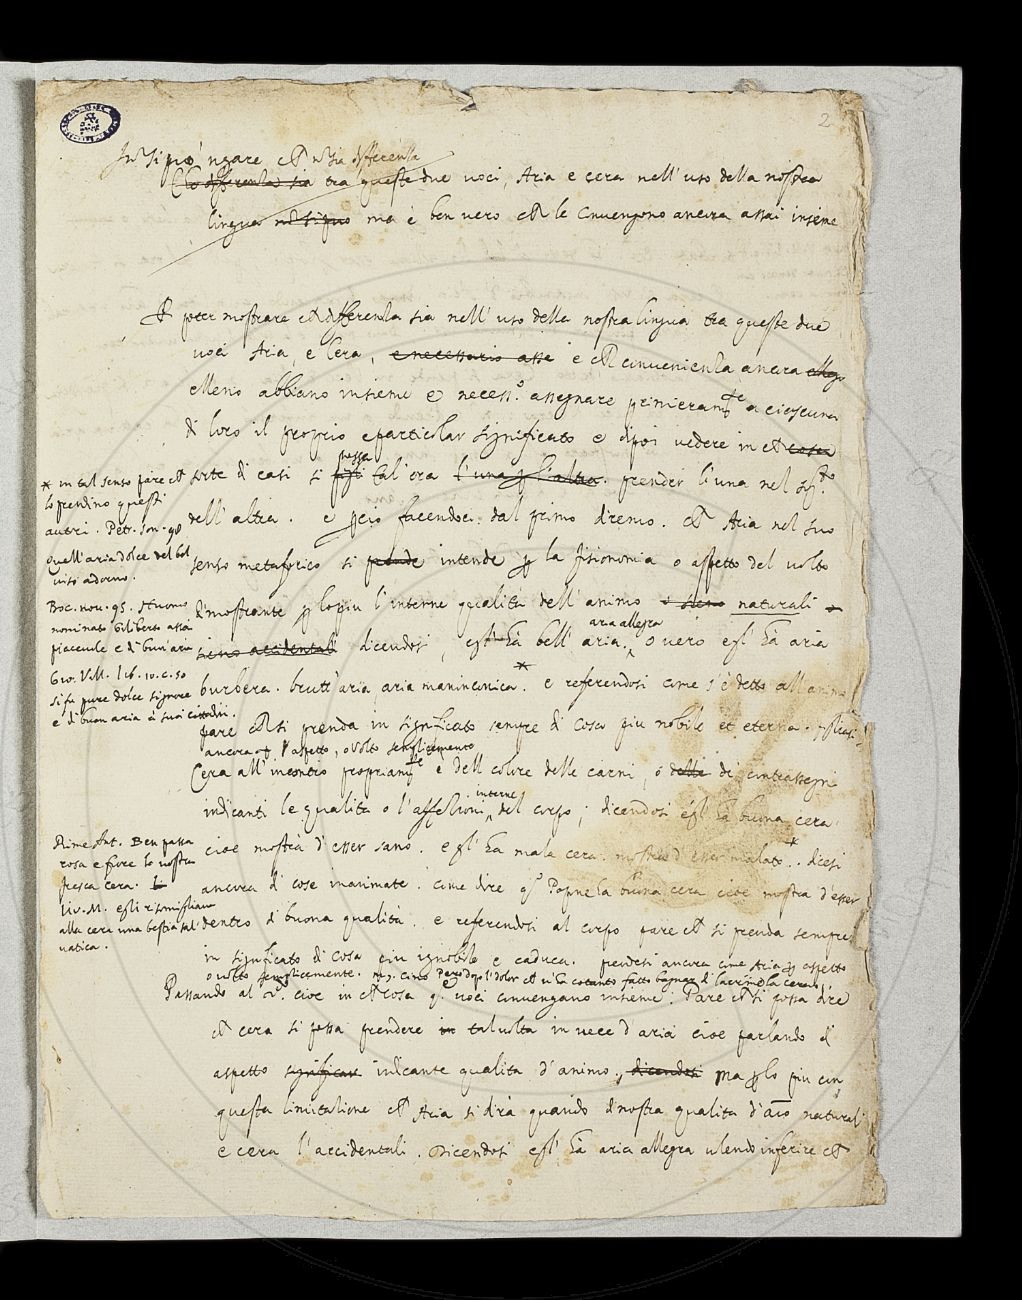 2
Non si può negare che non sia differenza
che differenza sia tra queste due voci, Aria e cera nell'uso della nostra
lingua non si può ma è ben vero che le convengono ancora assai insieme
A poter mostrare che differenza sia nell'uso della nostra lingua tra queste due
voci Aria, e Cera, e necessario asse e che convenienza ancora
elleno abbiano insieme è necess.o assegnare primieram.te a ciascuna
di loro il proprio e particolar significato e dipoi vedere in che cosa
possa
sorte di casi si tal'ora l'una per l'altra. prender l'una nel
dell'altra. e per ciò facendoci dal primo diremo. che Aria nel suo
senso metaforico si prende intende per la fisionomia o aspetto del volto
dimostrante per lo più l'interne qualità dell'animo o sieno naturali o
aria allegra
sieno accidentali dicendosi, egli hà bell'aria. o vero egli hà aria
burbera. brutt'aria aria maninconica. * e referendosi come s'è detto all'anim
pare che si prenda in significato sempre di cosa più nobile et eterna.
ancora per l'aspetto, o volto semplicemente
Cera all'incontro propriam.te è dell colore delle carni, o delle di contrassegni
interne
indicanti le qualità o l'affezioni del corpo; dicendosi egli hà buona cera.
cioè mostra d'esser sano. e egli hà mala cera. mostra d'esser malato. dicesi
ancora di cose inanimate. come dire q.o Popone ha buona cera cioè mostra d'esser
dentro di buona qualità. e referendosi al corpo pare che si prenda sempre
in significato di cosa più ignobile e caduca. prendesi ancora come Aria per aspetto
o volto semplicemente. m. Cino Pero dopo'l dolor che v'ha cotanto fatto bagnar di lacrime la cera
Passando al 2.o cioè in che cosa q. voci convengano insieme. Pare che si possa dire
che cera si possa prendere in talvolta in vece d'aria cioè parlando di
aspetto significante indicante qualità d'animo, dicendosi ma per lo più con
questa limitazione che Aria si dirà quando dimostra qualità d'aīo naturali
e cera l'accidentali. Dicendosi egli hà aria allegra volendo inferire che
* in tal senso pare che
lo prendino questi
autri. Pet. son. 98
Quell'aria dolce del bel
viso adorno.
Boc. nov. 95. Huomo
nominato Giliberto assai
piacevole e di buon'aria
Gio. Vill. lib. 10. c. 50
si fu pure dolce signore
e di buon aria a suoi cittadini.
Rime Ant. Ben passa
rosa e fiore la vostra
fresca cera. L
Liv. M. egli risomigliava
alla cera una bestia sal
vatica.